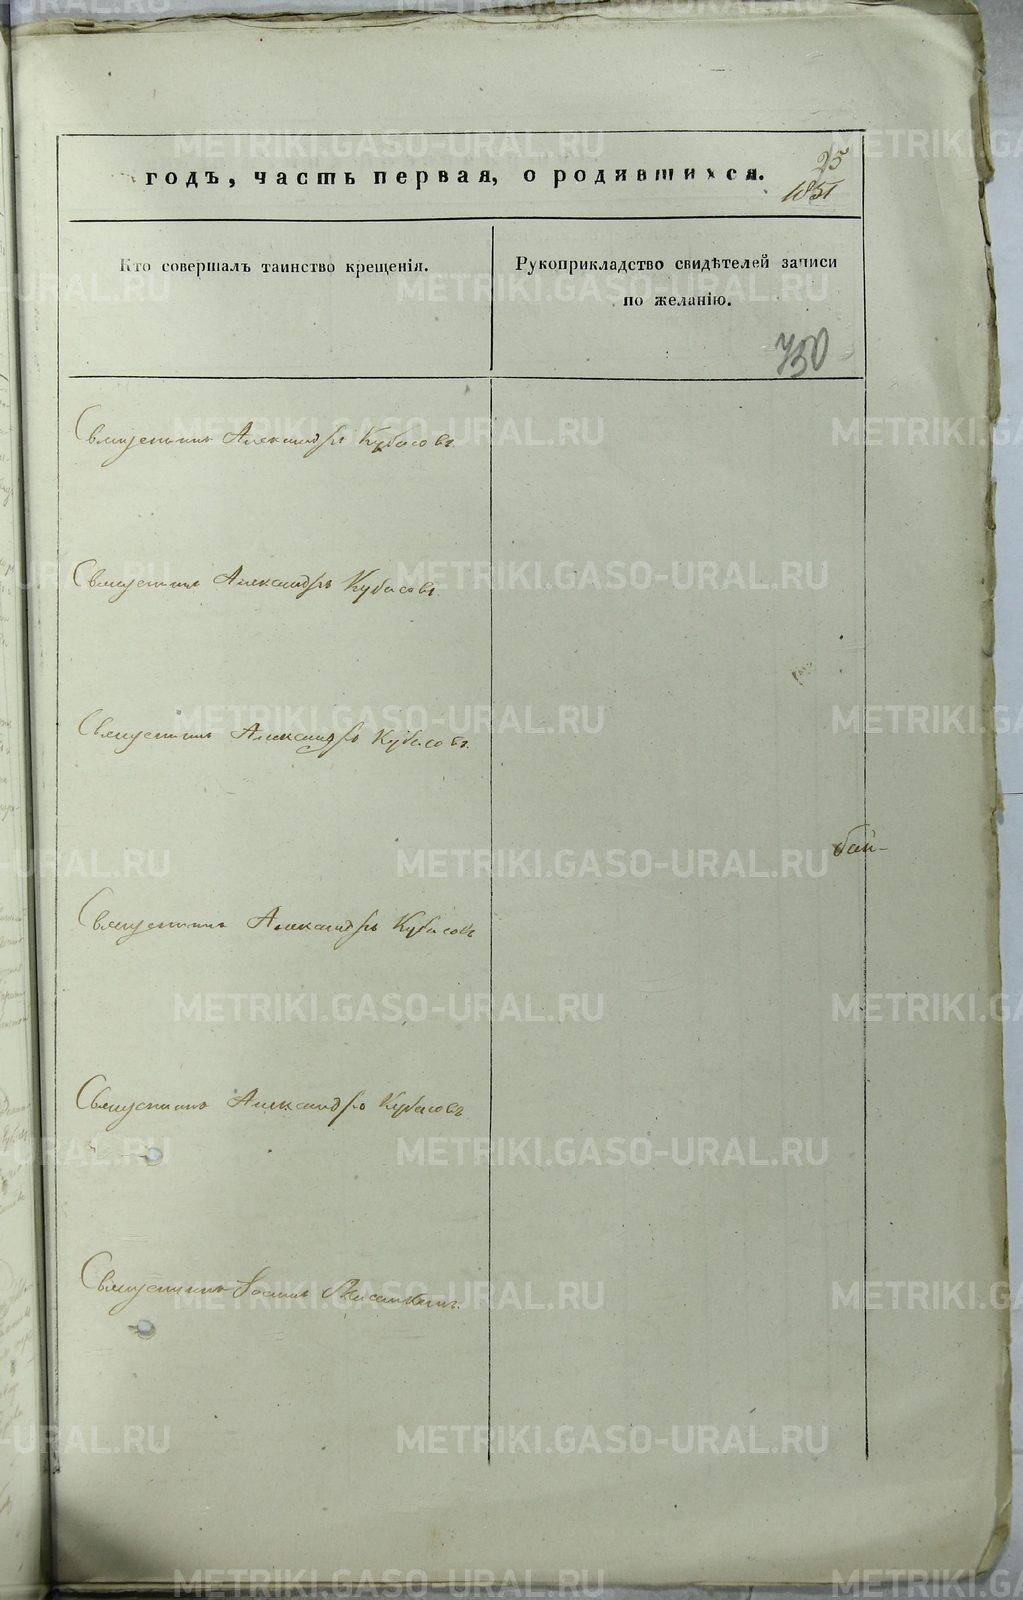 25
годъ, часть первая, о родившихся.
1851
Кто совершалъ таинство крещенія.
Рукоприкладство свидѣтелей записи
по желанію.
750
Священникъ Александръ Кубасовъ.
Священникъ Александръ Кубасовъ.
Священникъ Александръ Кубасовъ.
бай-
Священникъ Александръ Кубасовъ
Священникъ Александръ Кубасовъ
Священникъ
METRIKI.GASO-URAL.RU